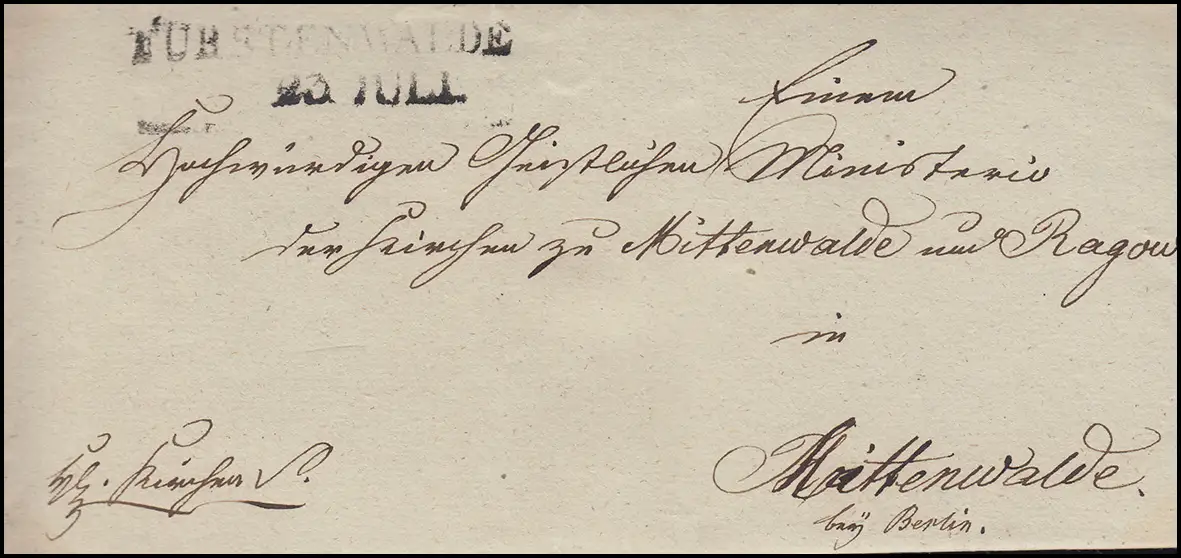 FURSTENWALDE
23 JULI
Einem
Hochwürdigen Geistlichen Ministerio
der Kirchen zu Mittenwalde und Ragow
in
Kirchen S.
Mittenwalde.
bey Berlin.